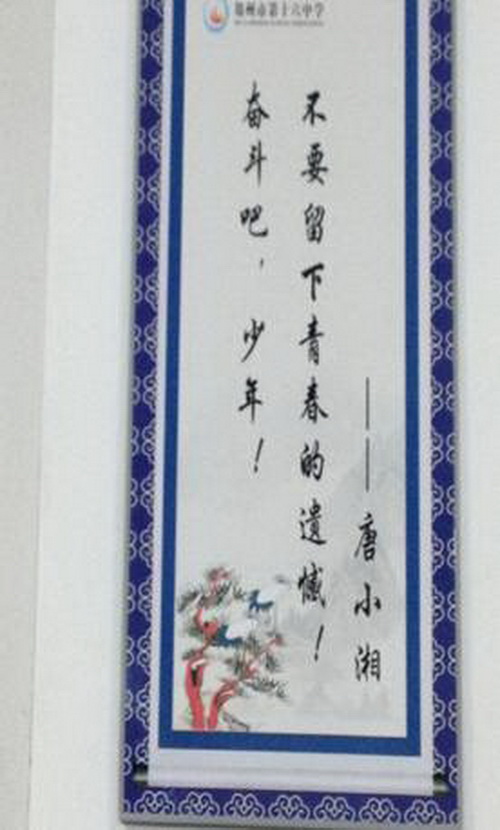 州市第十六中学
奋斗吧，少年！
不要留下青春的遗憾！
——唐小湘